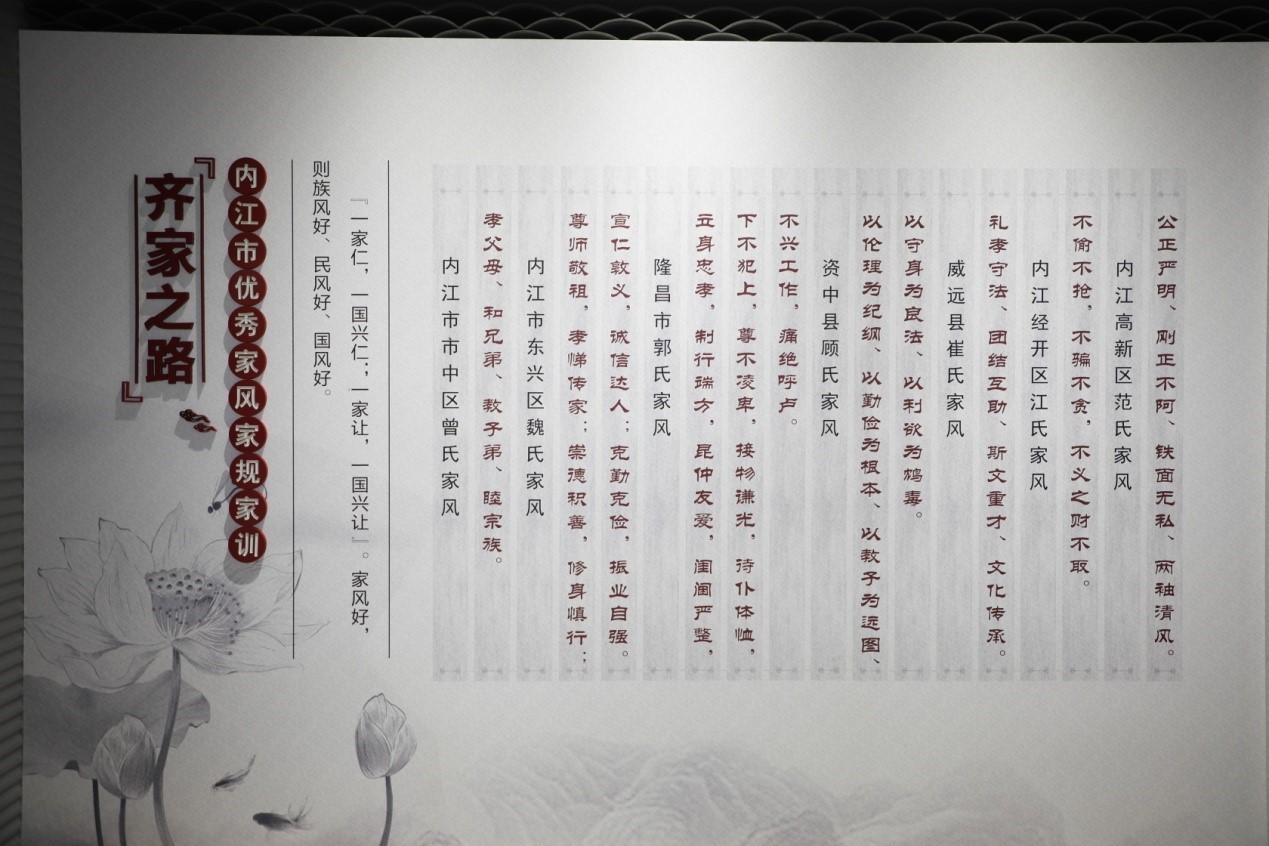 『齐家之路』
内江市优秀家风家规家训
『一家仁，一国兴仁；一家让，一国兴让』。家风好，
则族风好、民风好、国风好。
内江市市中区曾氏家风
孝父母、和兄弟、教子弟、睦宗族。
内江市东兴区魏氏家风
尊师敬祖，孝悌传家；崇德积善，修身慎行；
宣仁敦义，诚信达人；克勤克俭，振业自强。
隆昌市郭氏家风
立身忠孝，制行端方，昆仲友爱，闺阃严整，
下不犯上，尊不凌卑，接物谦光，待仆体恤，
不兴工作，痛绝呼卢。
资中县顾氏家风
以伦理为纪纲、以勤俭为根本、以教子为远图、
以守身为良法、以利欲为鸩毒。
威远县崔氏家风
礼孝守法、团结互助、斯文重才、文化传承。
内江经开区江氏家风
不偷不抢，不骗不贪，不义之财不取。
内江高新区范氏家风
公正严明、刚正不阿、铁面无私、两袖清风。